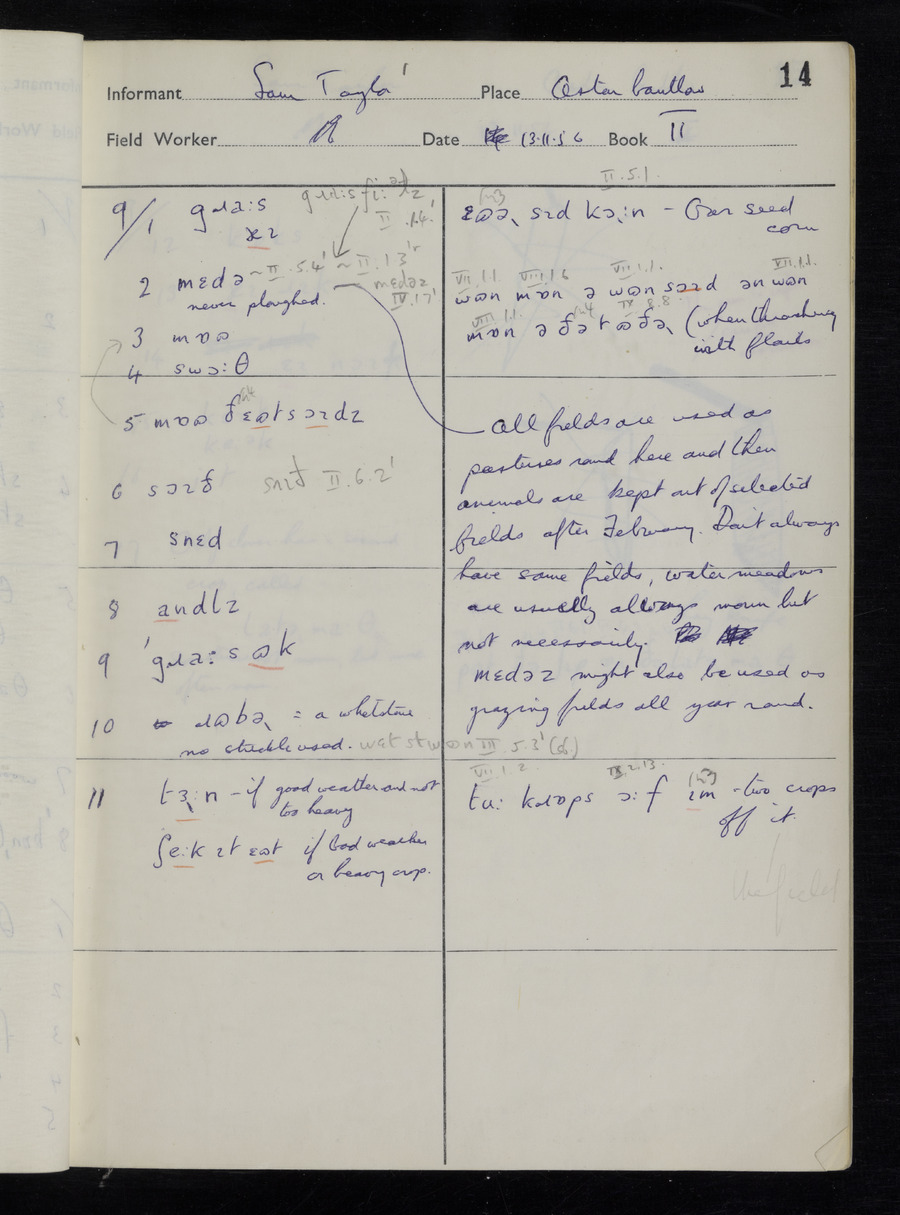 14
Informant Sam Taylor Place Aston Cantlow
Field Worker Date 13.11.56 Book II
9/1 gɹaːs
2 mɛdə ~ II.5.4' ~ II.1.3'
never ploughed.
mɛdəz
IV.17'
3 mɒɷ
4 swɔːθ
5 mɒɷ ðɛɷt sɔɪdz
6 sɔɪð II.6.2'
7 snɛd
8 andlz
9 'gɹaːsɷk
10 ɹɷbə = a whetstone
no strickle used. wɛt stwɷn III.5.3'
11 tɜːn - if good weather and not
too heavy
ʃeːk ɪt ɛɷt if bad weather
or heavy crop.
II.5.1.
sɪd kɔːn - Our seed
corn
VII.1.1 VIII.1.6 VII.1.1. VII.1.1.
wɷn mɒn ə wɷn ən wɷn
VIII.1.1. IX.8.8
mɒn ə (when thrashing
with flails
All fields are used as
pastures round here and then
animals are kept out of selected
fields after February. Don't always
have same fields, water meadows
are usually always mown but
not necessarily.
mɛdəz might also be used as
grazing fields all year round.
VII.1.2 IX.2.13.
tuː kɹɒps ɔːf ɪm - two crops
off it.
the field